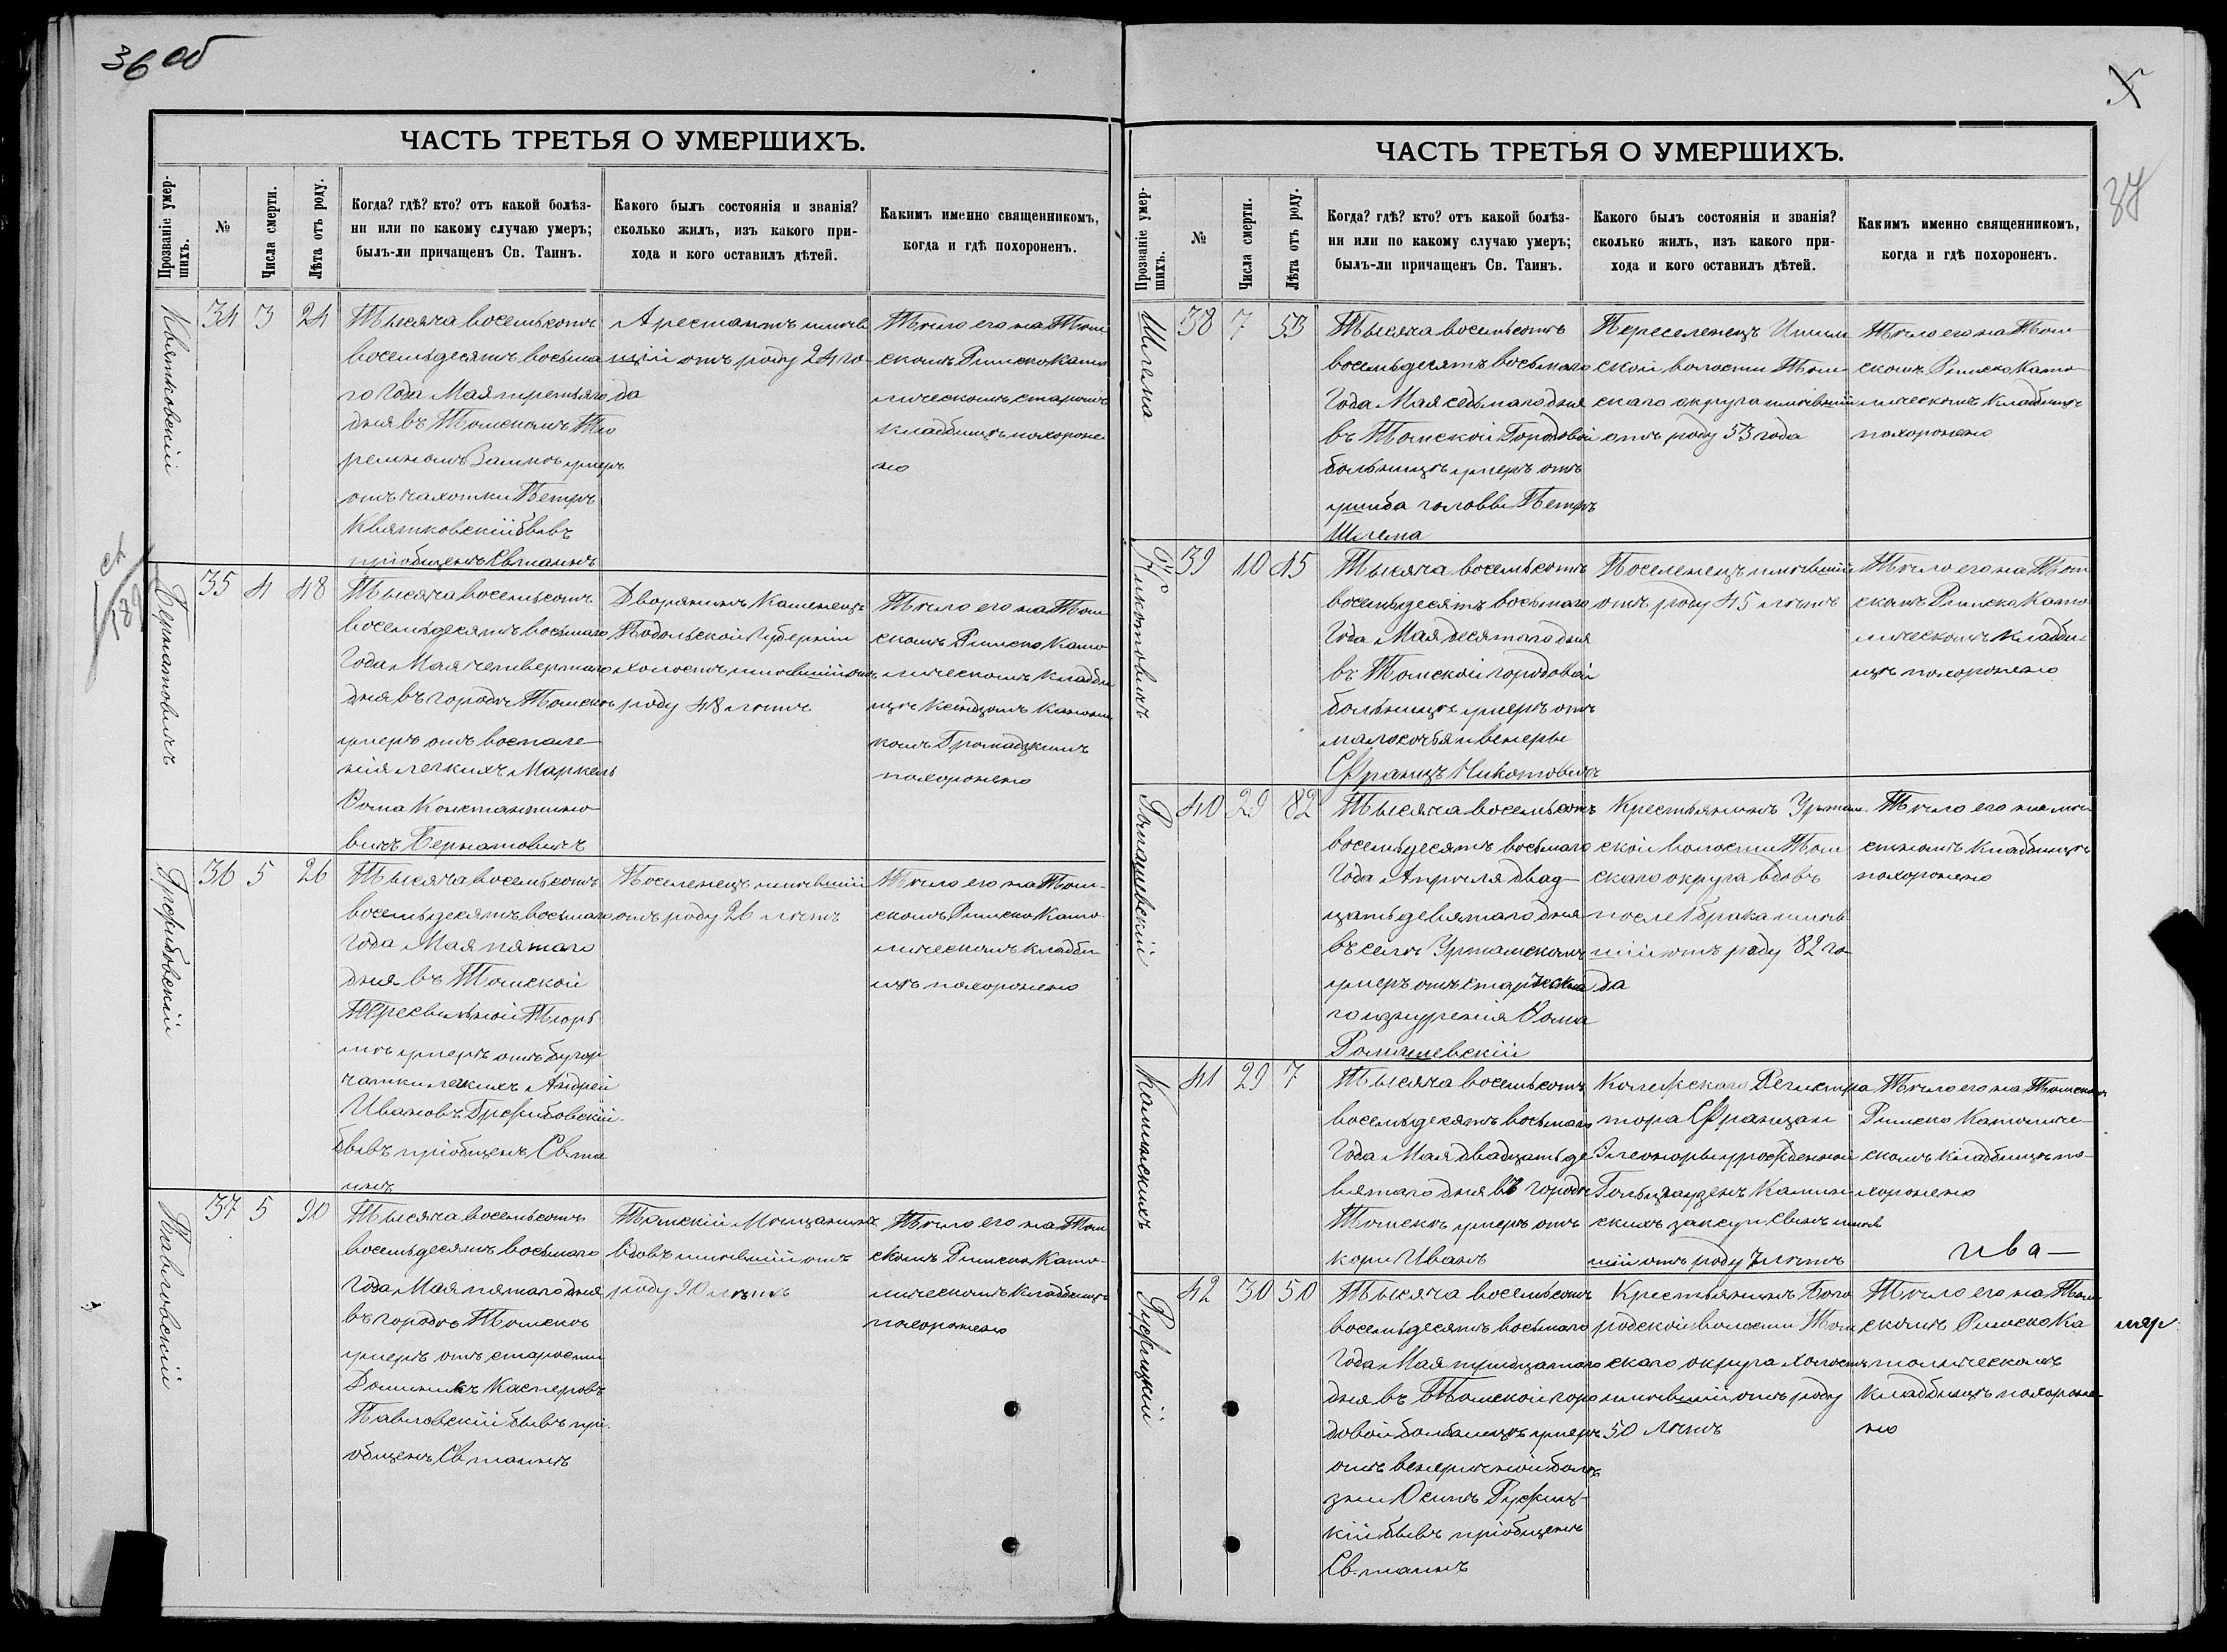 36 об
ЧАСТЬ ТРЕТЬЯ О УМЕРШИХЪ.
Прозваніе умер-
шихъ.
№
Числа смерти.
Лѣта отъ роду.
Когда? гдѣ? кто? отъ какой болѣз-
ни или по какому случаю умеръ;
былъ-ли причащенъ Св. Таинъ.
Какого былъ состоянія и званія?
сколько жилъ, изъ какого при-
хода и кого оставилъ дѣтей.
Какимъ именно священникомъ,
когда и гдѣ похороненъ.
Квятковскій
34 3 24
Тысяча восемьсотъ
восемьдесятъ восьма
го года Мая третьяго
дня въ Томскомъ Тю
ремномъ Замкѣ умеръ
отъ чахотки Петръ
Квятковскій бывъ
пріобщенъ Св. таинъ
Арестантъ имѣв
шій отъ роду 24 го
да
Тѣло его на Том
скомъ Римско Като
лическомъ старомъ
кладбищѣ похороне
но
Бернатовичъ
35 4 48
Тысяча восемьсотъ
восемьдесятъ восьмаго
Года Мая четвертаго
дня въ городѣ Томскѣ
умеръ отъ воспале-
нія легкихъ Маркель
Ѳома Константино-
вичъ Бернатовичъ
Дворянинъ Каменецъ
Подольской Губерніи
холостъ имѣвшій отъ
роду 48 лѣтъ
Тѣло его на Том
скомъ Римско Като
лическомъ кладби
щѣ Ксендзомъ Канони
комъ Громадзкимъ
похоронено
Гржибовскій
36 5 26
Тысяча восемьсотъ
восемьдесятъ восьмаго
года Мая пятаго
дня въ Томской
Пересыльной Тюрь
мѣ умеръ отъ бугор
чатки легкихъ Андрей
Ивановъ Гржибовскій
бывъ пріобщенъ Св. та
инъ
Поселенецъ имѣвшій
отъ роду 26 лѣтъ
Тѣло его на Том-
скомъ Римско Като-
лическомъ кладби
щѣ похоронено
Павловскій
37 5 90
Тысяча восемьсотъ
восемьдесятъ восьмаго
года Мая пятаго дня
въ городѣ Томскѣ
умеръ отъ старости
Доминикъ Касперовъ
Павловскій бывъ прі
общенъ Св. таинъ
Томскій Мѣщанинъ
вдовъ имѣвшій отъ
роду 90 лѣтъ
Тѣло его на Том
скомъ Римско Като-
лическомъ кладбищѣ
похоронено
37
ЧАСТЬ ТРЕТЬЯ О УМЕРШИХЪ.
Прозваніе умер-
шихъ.
№
Числа смерти.
Лѣта отъ роду.
Когда? гдѣ? кто? отъ какой болѣз-
ни или по какому случаю умеръ;
былъ-ли причащенъ Св. Таинъ.
Какого былъ состоянія и званія?
сколько жилъ, изъ какого при-
хода и кого оставилъ дѣтей.
Какимъ именно священникомъ,
когда и гдѣ похороненъ.
Шлема
38 7 53
Тысяча восемьсотъ
восемьдесятъ восьмаго
Года Мая седьмаго дня
въ Томской Городовой
больницѣ умеръ отъ
ушиба головы Петръ
Шлема
Переселенецъ Ишим
ской волости Том
скаго округа имѣвшій
отъ роду 53 года
Тѣло его на Том-
скомъ Римско Като-
лическомъ кладбищѣ
похоронено
Никотовичъ
39 10 45
Тысяча восемьсотъ
восемьдесятъ восьмаго
Года Мая десятаго дня
въ Томской городовой
больницѣ умеръ отъ
малокочія и венеры
Францъ Никотовичъ
Поселенецъ имѣвшій
отъ роду 45 лѣтъ
Тѣло его на Том
скомъ Римско Като-
лическомъ кладби-
щѣ похоронено
Ромашевскій
40 29 82
Тысяча восемьсотъ
восемьдесятъ восьмаго
Года Апрѣля двад-
цать девятаго дня
въ селѣ Уртамскомъ
умеръ отъ старческа
го изнуренія Ѳома
Ромашевскій
Крестьянинъ Уртам
ской волости Том
скаго округа вдовъ
послѣ 1 брака имѣв
шій отъ роду 82 го
да
Тѣло его на мѣ-
стномъ кладбищѣ
похоронено
Калинскихъ
41 29 7
Тысяча восемьсотъ
восемьдесятъ восьмаго
Года Мая двадцать де
вятаго дня въ городѣ
Томскѣ умеръ отъ
кори Иванъ
Колежскаго Регистра
тора Францан
Элеоноры урожденной
Гольцгаузенъ Калин
скихъ зак. суп. Сынъ имѣв
шій отъ роду 7 лѣтъ
Тѣло его на Томскомъ
Римско Католиче-
скомъ кладбищѣ по-
хоронено
Ружицкій
42 30 50
Тысяча восемьсотъ
восемьдесятъ восьмаго
Года Мая тридцатаго
дня въ Томской горо
довой больницѣ умеръ
отъ венеричной болѣ
зни Осипъ Ружиц-
кій бывъ пріобщенъ
Св. таинъ
Крестьянинъ Бого
родской волости Том
скаго округа холостъ
имѣвшій отъ роду
50 лѣтъ
Тѣло его на Том-
скомъ Римско Ка
толическомъ
кладбищѣ похороне-
но